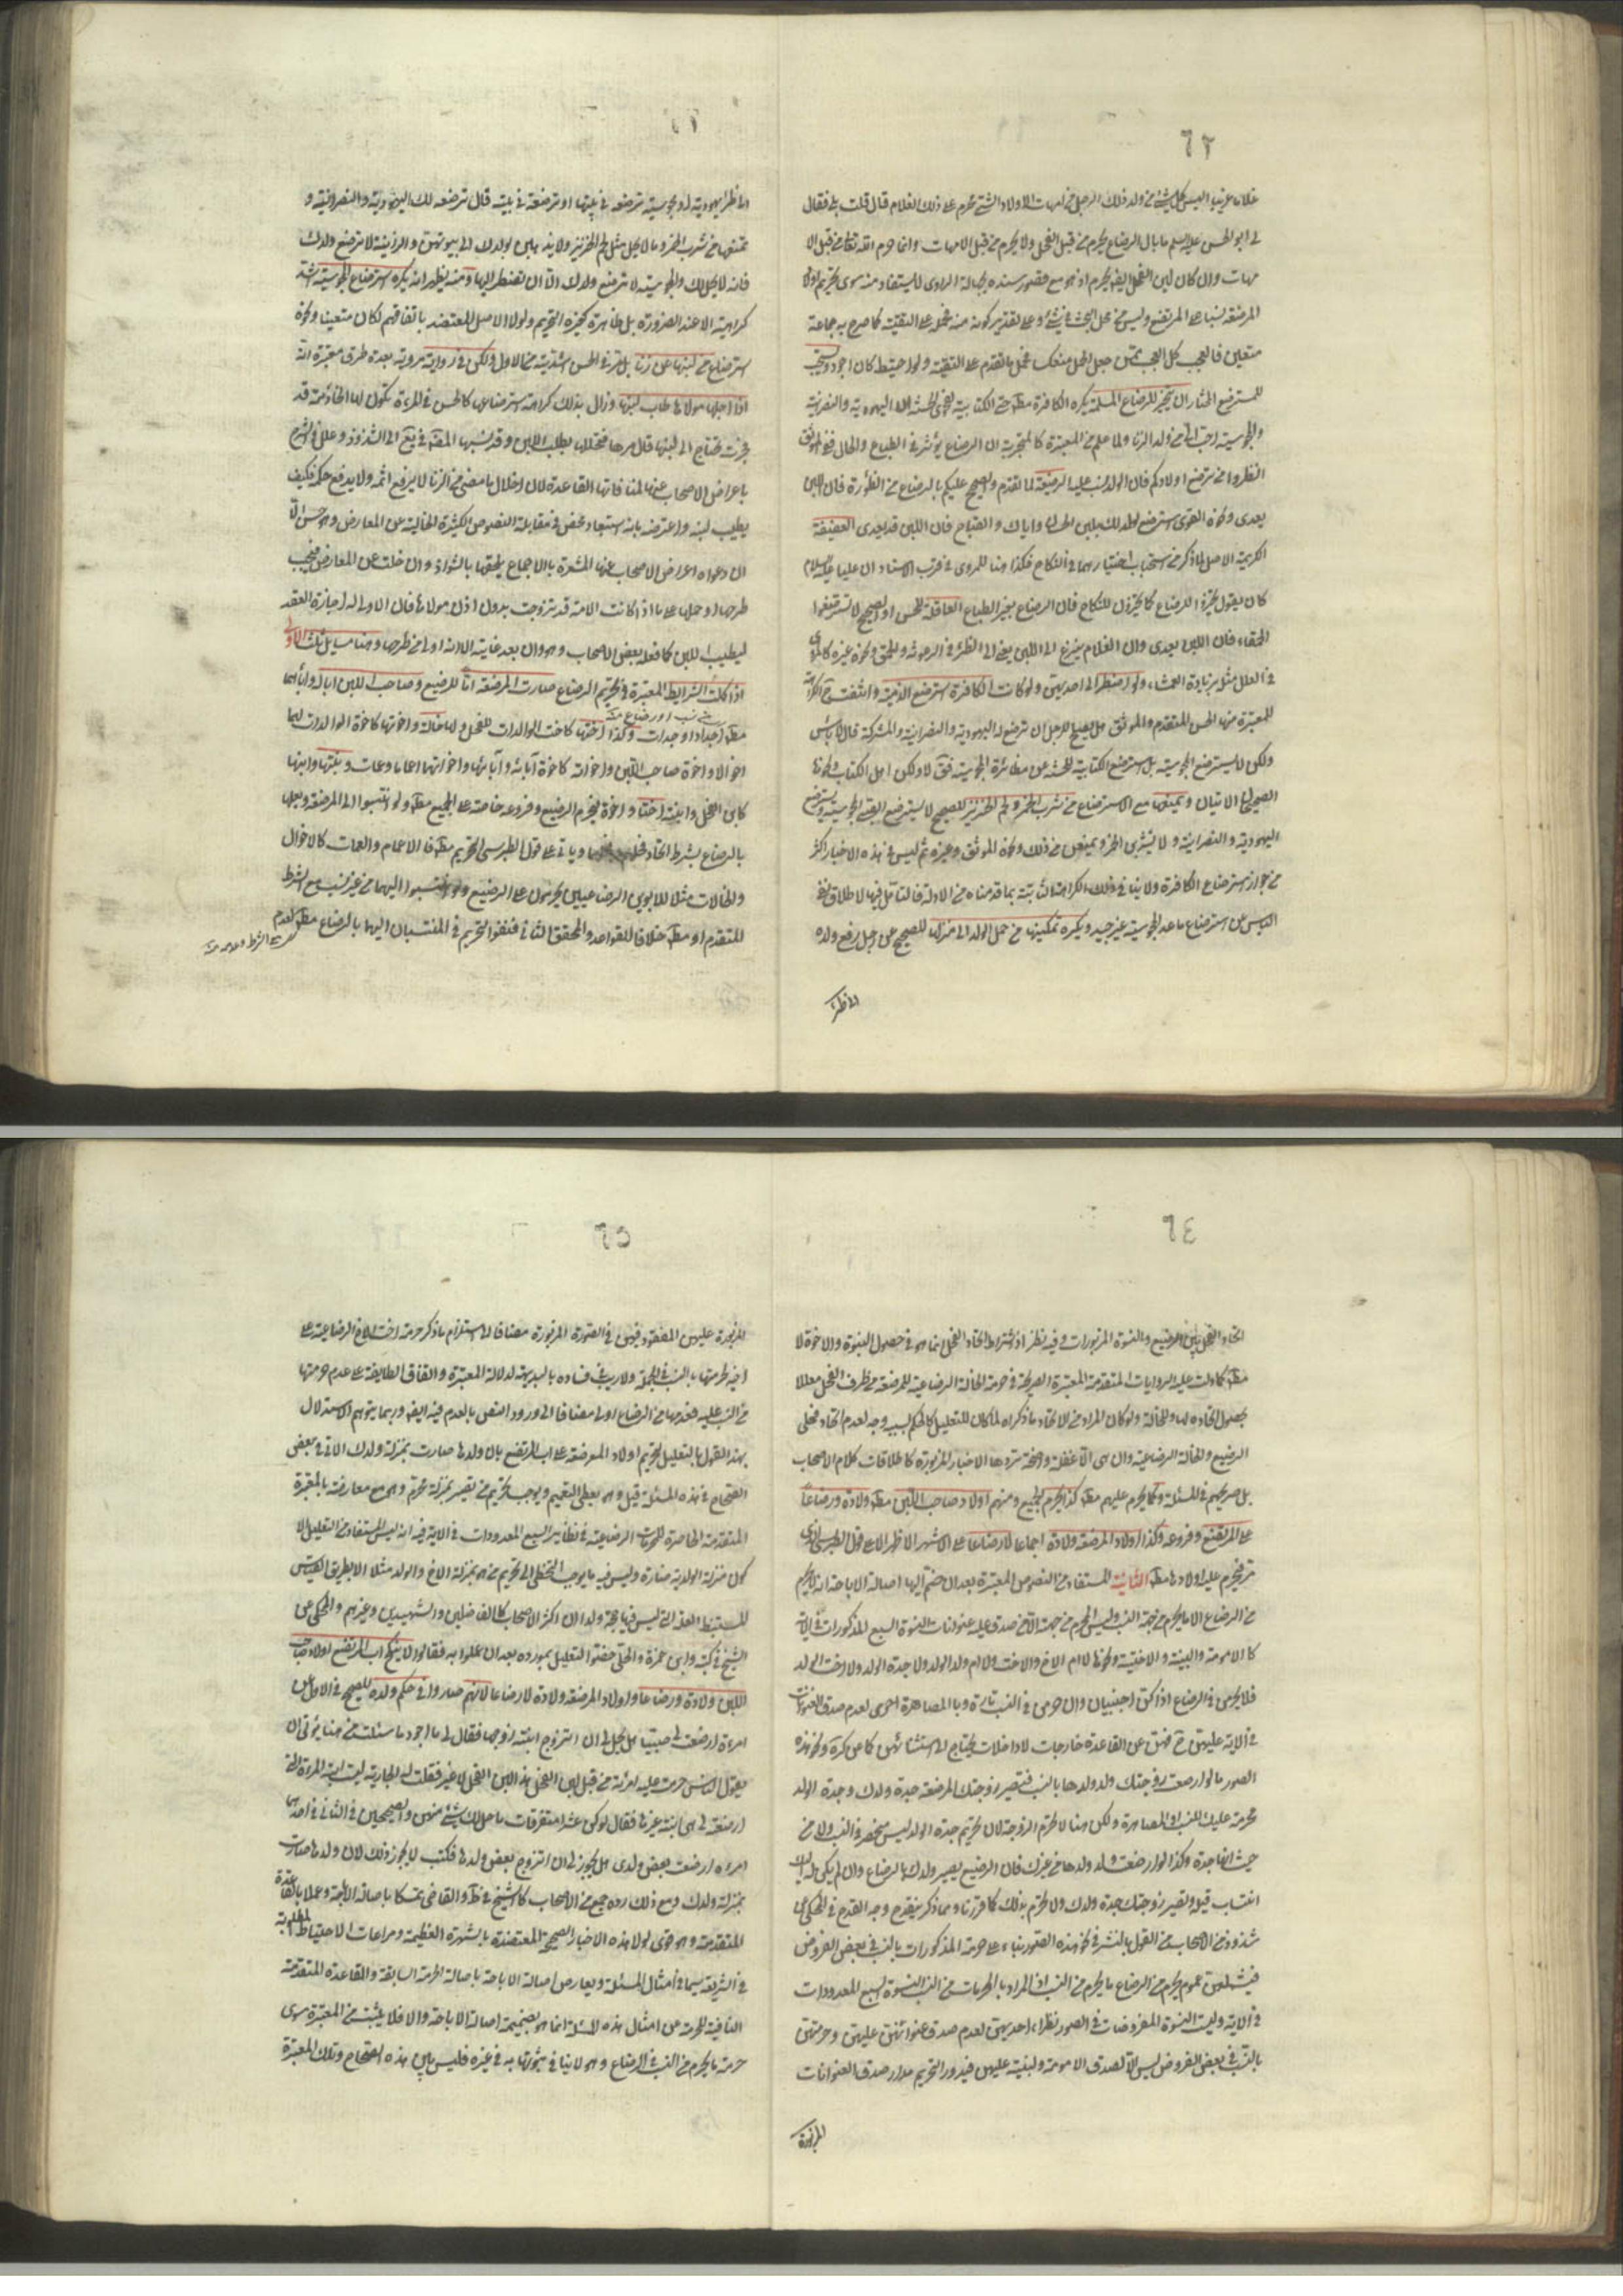 ٦٢
غلاما غريبا اليس كل شيء من ولد ذلك الرجل من امهات الاولاد الشتى محرم على ذلك الغلام قال قلت بلى فقال
لي ابو الحسن عليه السلم ما بال الرضاع يحرم من قبل الفحل ولا يحرم من قبل الامهات وانما حرم الله الرضاع من قبل الا
مهات وان كان لبن الفحل ايضا يحرم اذ هو مع قصور سنده بجهالة الراوي لا يستفاد منه سوى تحريم اولاد
المرضعة نسبا على المرتضع وليس من محل البحث في شيء او على تقدير كونه منه محمل على التقية كما صرح به جماعة
متعين فالعجب كل العجب ممن جعل الحمل منعكسا فحمل ما تقدم على التقية ولو احتيط كان اجود ويستحب
للمسترضع المختار ان يتخير للرضاع المسلمة يكره الكافرة مطلقا حتى الكتابية اليهودية والنصرانية
والمجوسية احب الي من ولد الزنا ولما علم من المعتبرة كالتجربة ان الرضاع يؤثر في الطباع والحال ففي الموثق
انظروا من ترضع اولادكم فان الولد يشب عليه الرضيعة لما تقدم وللصحيح عليكم بالوضاء من الظؤرة فان اللبن
يعدي ونحوه القوي استرضع لولدك بلبن الحسان واياك والقباح فان اللبن قد يعدي العفيفة
الكريمة الاصل لما ذكر من استحباب اختيارهما في النكاح فكذا هنا للمروي في قرب الاسناد ان عليا عليه السلام
كان يقول تخيروا للرضاع كما تخيرون للنكاح فان الرضاع يغير الطباع العاقلة للحسن او الصحيح لا تسترضعوا
الحمقاء فان اللبن يعدي وان الغلام ينزع الى اللبن يعني الى الظئر في الرعونة والحمق ونحوه غيره كالمروي
في العلل مثله بزيادة العمشاء ولو اضطر الى احديهن ولو كانت الكافرة استرضع الذمية وانتفت الكراهة
للمعتبرة منها الحسن المتقدم والموثق هل يصلح للرجل ان ترضع له اليهودية والنصرانية والمشركة قال لا باس
ولكن لا يسترضع المجوسية بل يسترضع الكتابية
الاتيان ويمنعها مع الاسترضاع من شرب الخمر ولحم الخنزير للصحيح لا يسترضع الصبي المجوسية وتسترضع
اليهودية والنصرانية ولا يشربن الخمر ويمنعن من ذلك ونحوه الموثق وغيره ثم ليس في هذه الاخبار اكثر
من جواز استرضاع الكافرة ولا ينافي ذلك الكراهة الثابتة بما قدمناه من الادلة فالتامل فيها لاطلاق نفي
الباس عن استرضاع ما عدا المجوسية غير جيد ويكره تمكينها من حمل الولد الى منزلها للصحيح عن رجل دفع ولده
الى ظئر
٦٣
الى ظئر يهودية او مجوسية ترضعه في بيتها او ترضعه في بيته قال ترضعه لك اليهودية والنصرانية و
تمنعها من شرب الخمر وما لا يحل مثل لحم الخنزير ولا يذهبن بولدك الى بيوتهن والزانية لا ترضع ولدك
فانه لا يحل لك والمجوسية لا ترضع ولدك الا ان تضطر اليها ومنه يظهر انه يكره استرضاع المجوسية اشد
كراهية الا عند الضرورة بل ظاهره كغيره التحريم ولولا الاصل المعتضد باتفاقهم لكان متعينا ونحوه
استرضاع من لبنها عن زنا بل في الحسن اشديته من الاول ولكن في رواية مروية بعدة طرق معتبرة انه
اذا احلها مولاها طاب لبنها وزال بذلك كراهة استرضاعها كالحسن في المراة تكون لها الخادمة قد
فجرت فتحتاج الى لبنها قال مرها فتحللها يطيب اللبن وقد نسبها المصنف في يع الى الشذوذ وعلل في الشرح
باعراض الاصحاب عنها لمنافاتها القاعدة لان احلال ما مضى من الزنا لا يرفع اثمه ولا يدفع حكمه فكيف
يطيب لبنه واعترضه بانه استبعاد محض في مقابلة النصوص الكثيرة الخالية عن المعارض وهو حسن الا
ان دعواه اعراض الاصحاب عنها المشعرة بالاجماع يلحقها بالشواذ وان خلت عن المعارض فيجب
طرحها او حملها على ما اذا كانت الامة قد تزوجت بدون اذن مولاها فان الاولى له اجازة العقد
ليطيب اللبن كما فعله بعض الاصحاب وهو وان بعد غايته الا انه اولى من طرحها وهنا مسايل ثلث الاولى
اذا كملت الشرايط المعتبرة في تحريم الرضاع صارت المرضعة اما للرضيع وصاحب اللبن ابا له وآبائهما
من نسب او رضاع منه
مطلقا اجدادا وجدات وكذا اختها كاخت الوالدات للفحل ولها خالة واخوتها كاخوة الوالدات لهما
اخوالا واخوة صاحب اللبن واخواته كاخوة آبائه وآبائها واخواتهما اعماما وعمات وبنتها وابنها
كابن الفحل وابنته اختا واخوة فيحرم الرضيع وفروعه خاصة على الجميع مطلقا ولو انتسبوا الى المرضعة وبعلها
بالرضاع بشرط اتحاد فحلهما ويأتي على قول الطبرسي التحريم مطلقا الاعمام والعمات كالاخوال
والخالات مثلا للابوين الرضاعيين يحرمون على الرضيع ولو انتسبوا اليهما من غير نسب مع الشرط
المتقدم او مطلقا خلافا للقواعد والمحقق الثاني فنفوا التحريم في المنتسبان اليهما بالرضاع مطلقا لعدم
مع الشرط وعدمه منه
٦٤
اتحاد الفحل بين الرضيع والنسوة المزبورات وفيه نظر اذ اشتراط اتحاد الفحل انما هو في حصول البنوة والاخوة لا
مطلقا كما دلت عليه الروايات المتقدمة المعتبرة الصريحة في حرمة الخالة الرضاعية للمرضعة من طرف الفحل معللا
بحصول اتحاده لها وللخالة ولو كان المراد من الاتحاد ما ذكراه لما كان للتعليل كالحكم بسببه وجه لعدم اتحاد فحلي
الرضيع والخالة الرضاعية وان هي الا غفلة واضحة تردها الاخبار المزبورة كاطلاقات كلام الاصحاب
بل صريحهم في المسئلة وكما يحرم عليهم مطلقا كذا يحرم الجميع ومنهم اولاد صاحب اللبن مطلقا ولادة ورضاعا
على المرتضع وفروعه وكذا اولاد المرضعة ولادة اجماعا لا رضاعا على الاشهر الاظهر الا على قول الطبرسي الذي
مر فيحرم عليه اولادها مطلقا الثانية المستفاد من النصوص المعتبرة بعد ان ضم اليها اصالة الاباحة انه لا يحرم
من الرضاع الا ما يحرم من جهة النسب وليس المحرم من جهته الا من صدق عليه عنوانات النسوة السبع المذكورات في الاية
كالامومة والبنتية والاختية ونحوها لا ام الاخ والاخت ولا ام ولد الولد ولا جدة الولد ولا اخت الولد
فلا يحرمن في الرضاع اذا كن اجنبيات وان حرمن في النسب تارة وبالمصاهرة اخرى لعدم صدق العنوانات
في الاية عليهن ح فهن عن القاعدة خارجات لا داخلات يحتاج الى استثنائهن كما عن كره ونحو هذه
الصور ما لو ارضعت زوجتك ولد ولدها بالنسب فتصير زوجتك المرضعة جدة ولدك وجدة الولد
محرمة عليك بالنسب او المصاهرة ولكن هنا لا تحرم الزوجة لان تحريم جدة الولد ليس منحصر في النسب ولا من
حيث انها جدة وكذا لو ارضعت ولد ولدها من غيرك فان الرضيع يصير ولدك بالرضاع وان لم يكن له اليك
انتساب قبل وتصير زوجتك جدة ولدك ولا تحرم بذلك كما قررنا ومما ذكر ينقدح وجه القدح في المحكي عن
شذوذ من الاصحاب من القول بالنشر في نحو هذه الصور بناء على حرمة المذكورات بالنسب في بعض الفروض
فيشملهن عموم يحرم من الرضاع ما يحرم من النسب اذ المراد بالمحرمات من النسب النسوة السبع المعدودات
في الاية وليست النسوة المفروضات في الصور نظراء احديهن لعدم صدق عنوانهن عليهن وحرمتهن
بالنسب في بعض الفروض ليس الا لصدق الامومة والبنتية عليهن فيدور التحريم مدار صدق العنوانات
المزبورة
٦٥
المزبورة عليهن المفقود فيهن في الصورة المزبورة مضافا الى استلزام ما ذكر حرمة اخت الاخ الرضاعية على
اخيه لحرمتها بالنسب في الجملة ولا ريب في فساده بالبديهة لدلالة المعتبرة واتفاق الطايفة على عدم حرمتها
من النسب عليه فعدمها من الرضاع اولى مضافا الى ورود النص بالعدم فيه ايضا وربما يتوهم الاستدلال
بهذا القول بالتعليل لتحريم اولاد المرضعة على اب المرتضع بان ولدها صارت بمنزلة ولدك الاتي في بعض
الصحاح في هذه المسئلة قيل وهو يعطي التعميم ويوجب تحريم من تصير بمنزلة محرم وهو مع معارضته بالمعتبرة
المتقدمة الحاصرة للمحرمات الرضاعية في نظاير السبع المعدودات في الاية فيه انه ليس المستفاد من التعليل الا
كون منزلة الولدية ضارة وليس فيه ما يوجب التخطي الى تحريم من هو بمنزلة الاخ والولد مثلا الا بطريق القياس
المستنبط العلة التي ليس فيها حجة ولذا ان اكثر الاصحاب كالفاضلين والشهيدين وغيرهم والمحكي عن
الشيخ في كتبه وابن حمزة والحلي خصوا التعليل بمورده بعد ان عملوا به فقالوا لا ينكح اب المرتضع اولاد صاحب
اللبن ولادة ورضاعا واولاد المرضعة ولادة لا رضاعا لانهم صاروا في حكم ولده للصحيح في الاول عن
امراة ارضعت لي صبيا هل يحل لي ان اتزوج ابنة زوجها فقال لي ما اجود ما سئلت من هنا يؤتى ان
يقول الناس حرمت عليه امراته من قبل لبن الفحل هذا لبن الفحل لا غير فقلت له ان الجارية ليست ابنة المراة التي
ارضعت لي هي ابنة غيرها فقال لو كن عشرا متفرقات ما حل لك شيء منهن والصحيحين في الثاني في احدهما
امراة ارضعت بعض ولدي هل يجوز لي ان اتزوج بعض ولدها فكتب لا يجوز ذلك لان ولدها صارت
بمنزلة ولدك ومع ذلك رده جمع من الاصحاب كالشيخ في ط والقاضي تمسكا باصالة الاباحة وعملا بالقاعدة
المتقدمة وهو قوي لولا هذه الاخبار الصحيحة المعتضدة بالشهرة العظيمة ومراعات الاحتياط المطلوبة
في الشريعة سيما في امثال المسئلة ويعارض اصالة الاباحة باصالة الحرمة السابقة والقاعدة المتقدمة
النافية للحرمة عن امثال هذه المسئلة انما هو بضميمة اصالة الاباحة والا فلا يثبت من المعتبرة سوى
حرمة ما يحرم من النسب في الرضاع وهو لا ينافي ثبوتها به في غيره فليس بين هذه الصحاح وتلك المعتبرة